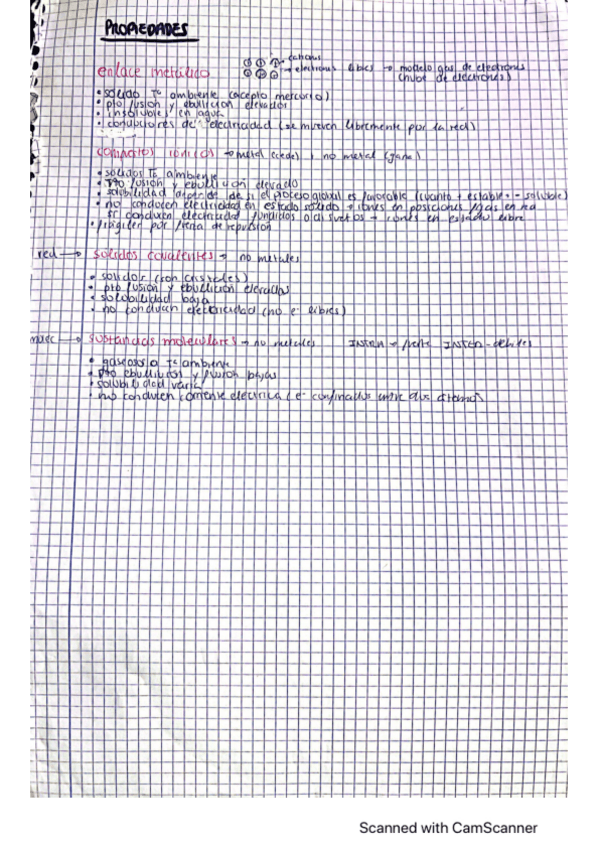 PROPIEDADES
cationes
enlace metálico → electrones libres → modelo gas de electrones
(nube de electrones)
• sólido Tª ambiente (excepto mercurio)
• pto fusión y ebullición elevados
• insolubles en agua
• conductores de electricidad (se mueven libremente por la red)
compuestos iónicos → metal (cede) y no metal (gana)
• sólidos Tª ambiente
• Pto fusión y ebullición elevado
• solubilidad depende de si el proceso global es favorable (cuanto + estable → - soluble)
• no conducen electricidad en estado sólido → iones en posiciones fijas en red
sí conducen electricidad fundidos o disueltos → iones en estado libre
• frágiles por fuerza de repulsión
red → sólidos covalentes → no metales
• sólidos (son cristales)
• pto fusión y ebullición elevados
• solubilidad baja
• no conducen electricidad (no e⁻ libres)
molec → sustancias moleculares → no metales INTRA → fuerte INTER → débiles
• gaseosos a Tª ambiente
• pto ebullición y fusión bajas
• solubilidad varía
• no conducen corriente eléctrica (e⁻ confinados entre dos átomos)
Scanned with CamScanner